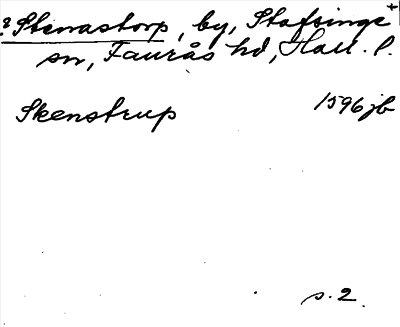 ? Stenastorp, by, Stafsinge +
sn, Faurås hd, Hall. l.
Skenstrup 1596 jb
s. 2.